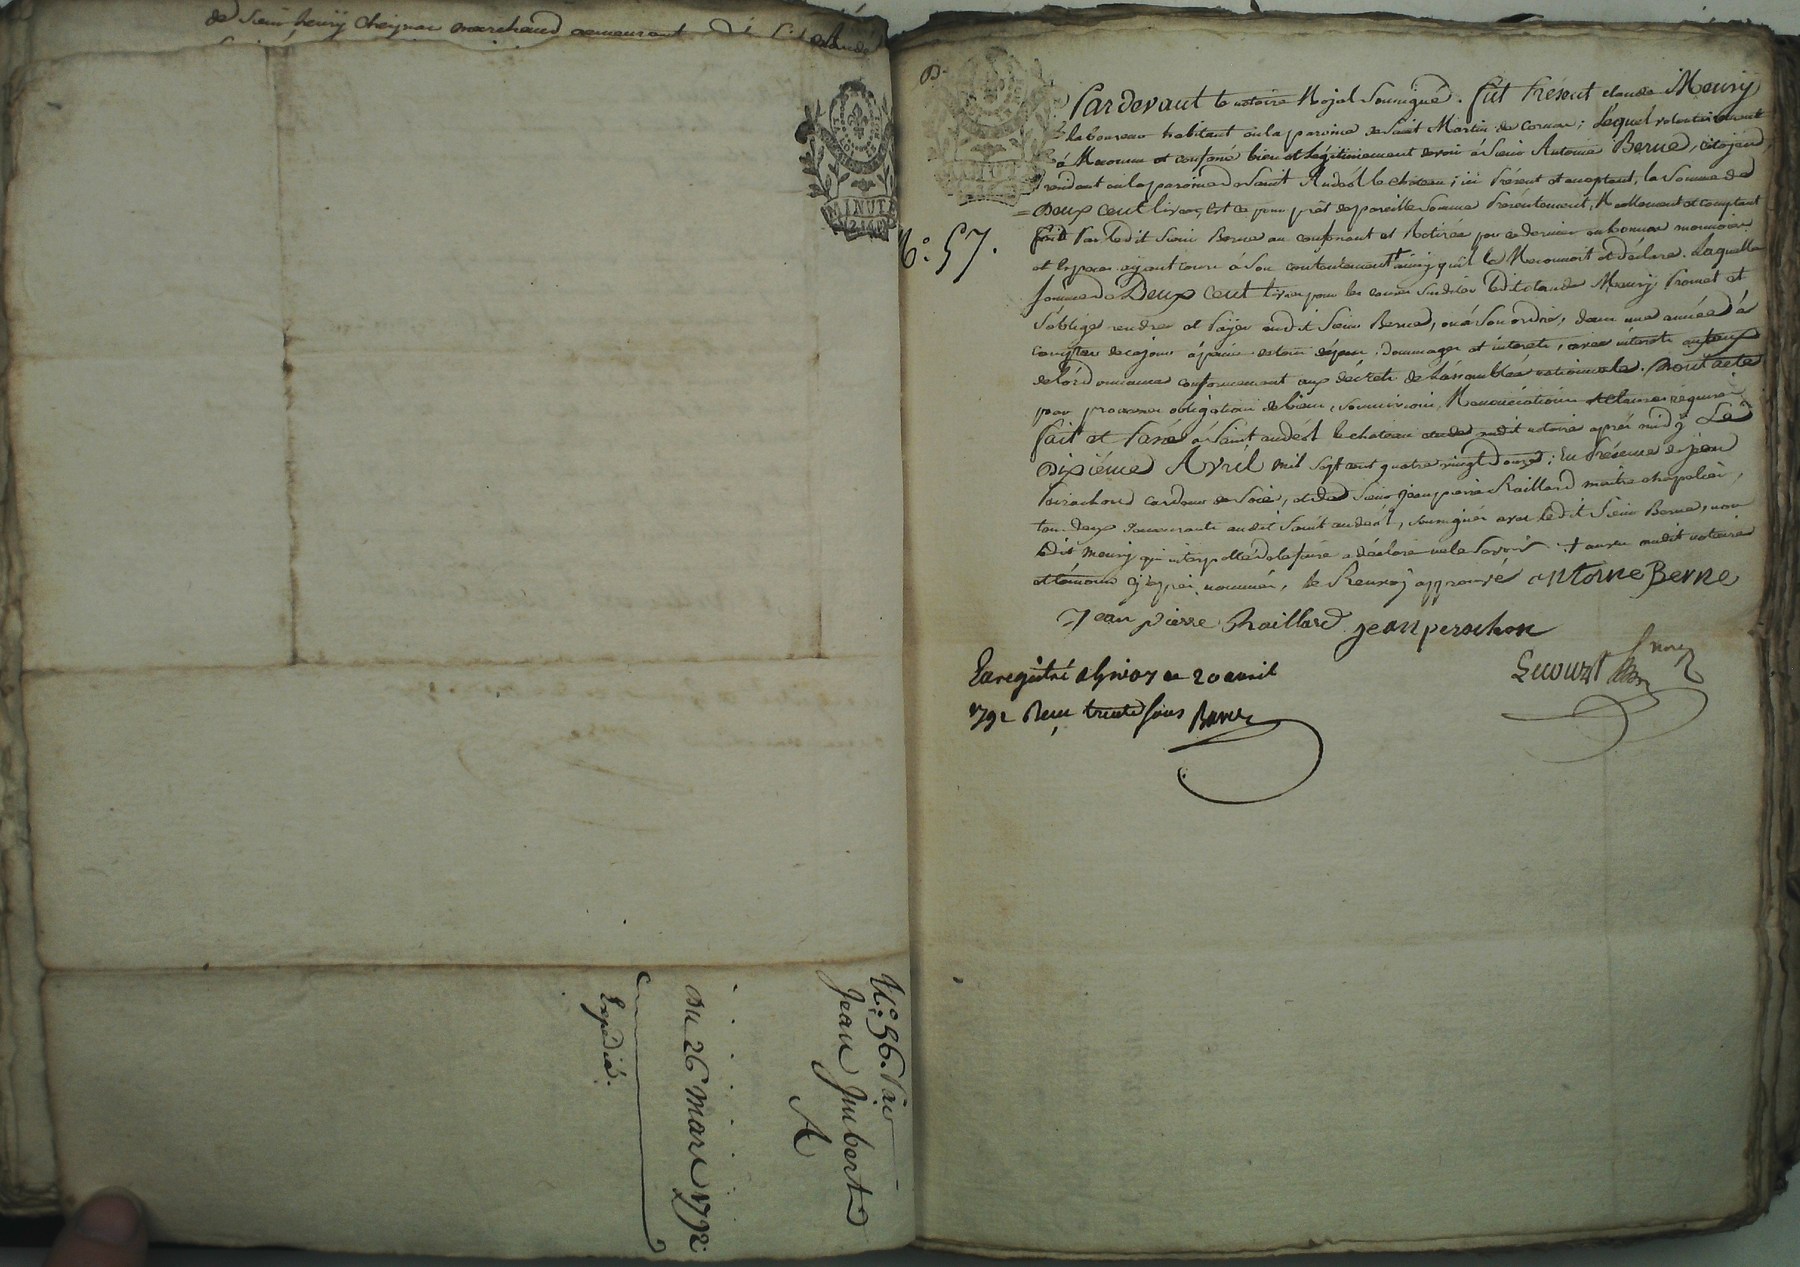 de Sieur henrÿ Cheynac marchand demeurant
MINUTE
No. 56. Par
Jean Jmbert
A
Du 26 mars 1792.
Expédié.
No. 57.
Pardevant le notoire Royal Soussigné. fut Présent claude Meurÿ
laboureur habitant en la paroisse de Saint Martin de Cornas; Lequel volontairement
à Reconnu et confessé bien et légitimement devoir à Sieur Antoine Berne, citoyen,
résidant en la paroisse de Saint Andéol le chateau; ici Présent et acceptant, la Somme de
Deux cent livres, Est ce pour prêt de pareille Somme Présentement, Réellement et comptant
fait Par ledit Sieur Berne au confessant et Retirée par ce dernier en bonnes monnoies
et Especes ayant cours à Son contentement + ainsy qu'il le Reconnoit et déclare. Laquelle
Somme de Deux cent livres pour les causes Susdites ledit claude Meurÿ Promet et
S'oblige rendre et Payer audit Sieur Berne, ou à Son ordre, dans une année à
compter de ce jour à peine de tous dépens, dommages et interets, avec intérets au taux
de l'ordonnance conformement aux décrets de l'assemblée nationale. Dont acte
par promesses obligations de biens, soumissions, Renonciations et clauses requises
fait et Passé à Saint andéol le chateau étude mdit notoire après midy Le
Dixiéme Avril mil Sept cent quatre vingt douze; En Présence de jean
Peirachon cardeur de Soie, et de Sieur jean pierre Raillard maitre chapelier,
tous deux demeurants audit Saint andéol, soussignés avec ledit Sieur Berne, non
ledit Meurÿ qui interpellé de le faire a déclaré ne le Savoir + au vu mdit notoire
et témoins cy après nommés, le Renvoy approuvé antoine Berne
Jean pierre Raillard jean perachon
Enregistré a Givors ce 20 avril
1792 Reçu trente sous